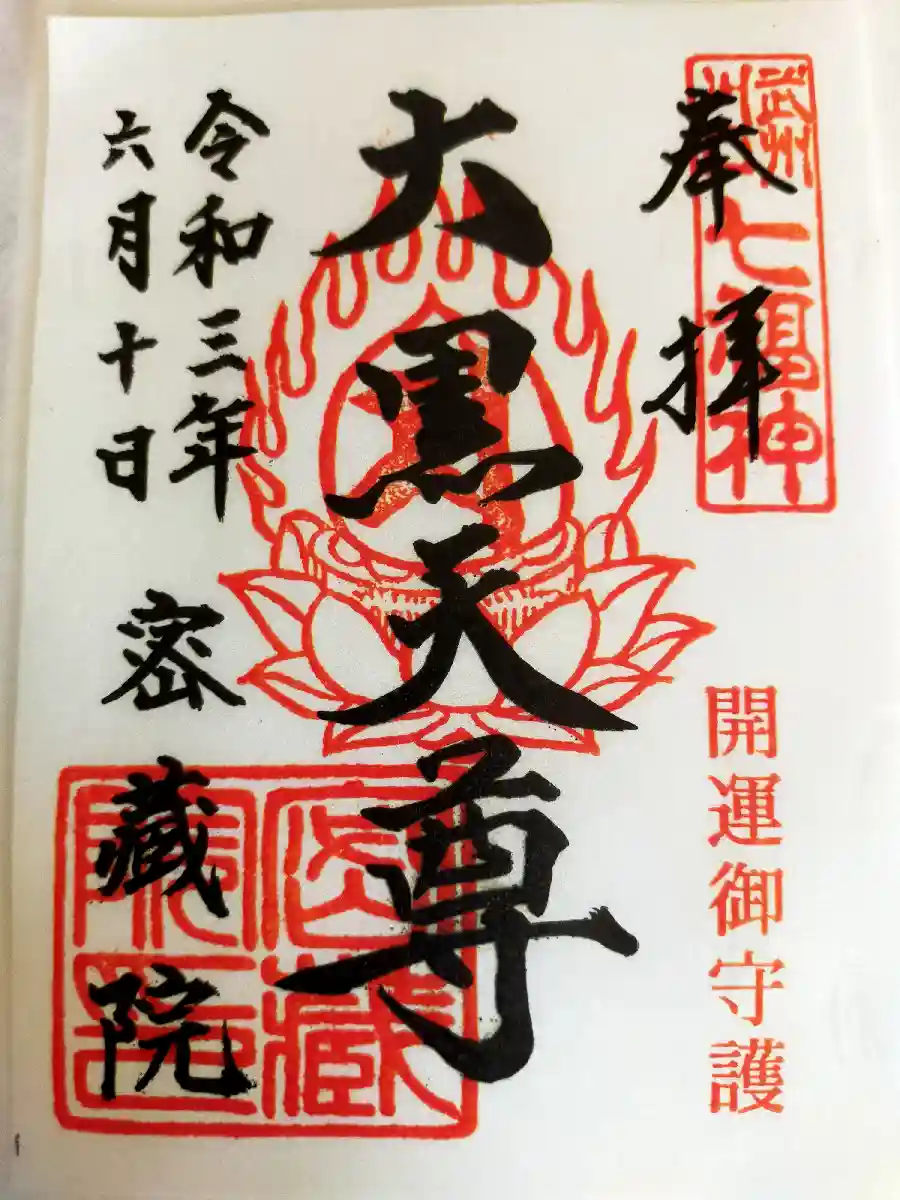 奉拝
武州川口七福神
開運御守護
大黒天尊
令和三年
六月十日
密藏院